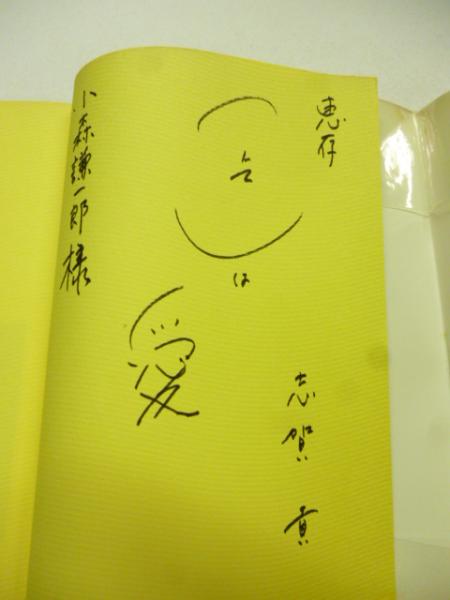 恵存
医は
愛
志賀 貢
小森謙一郎様